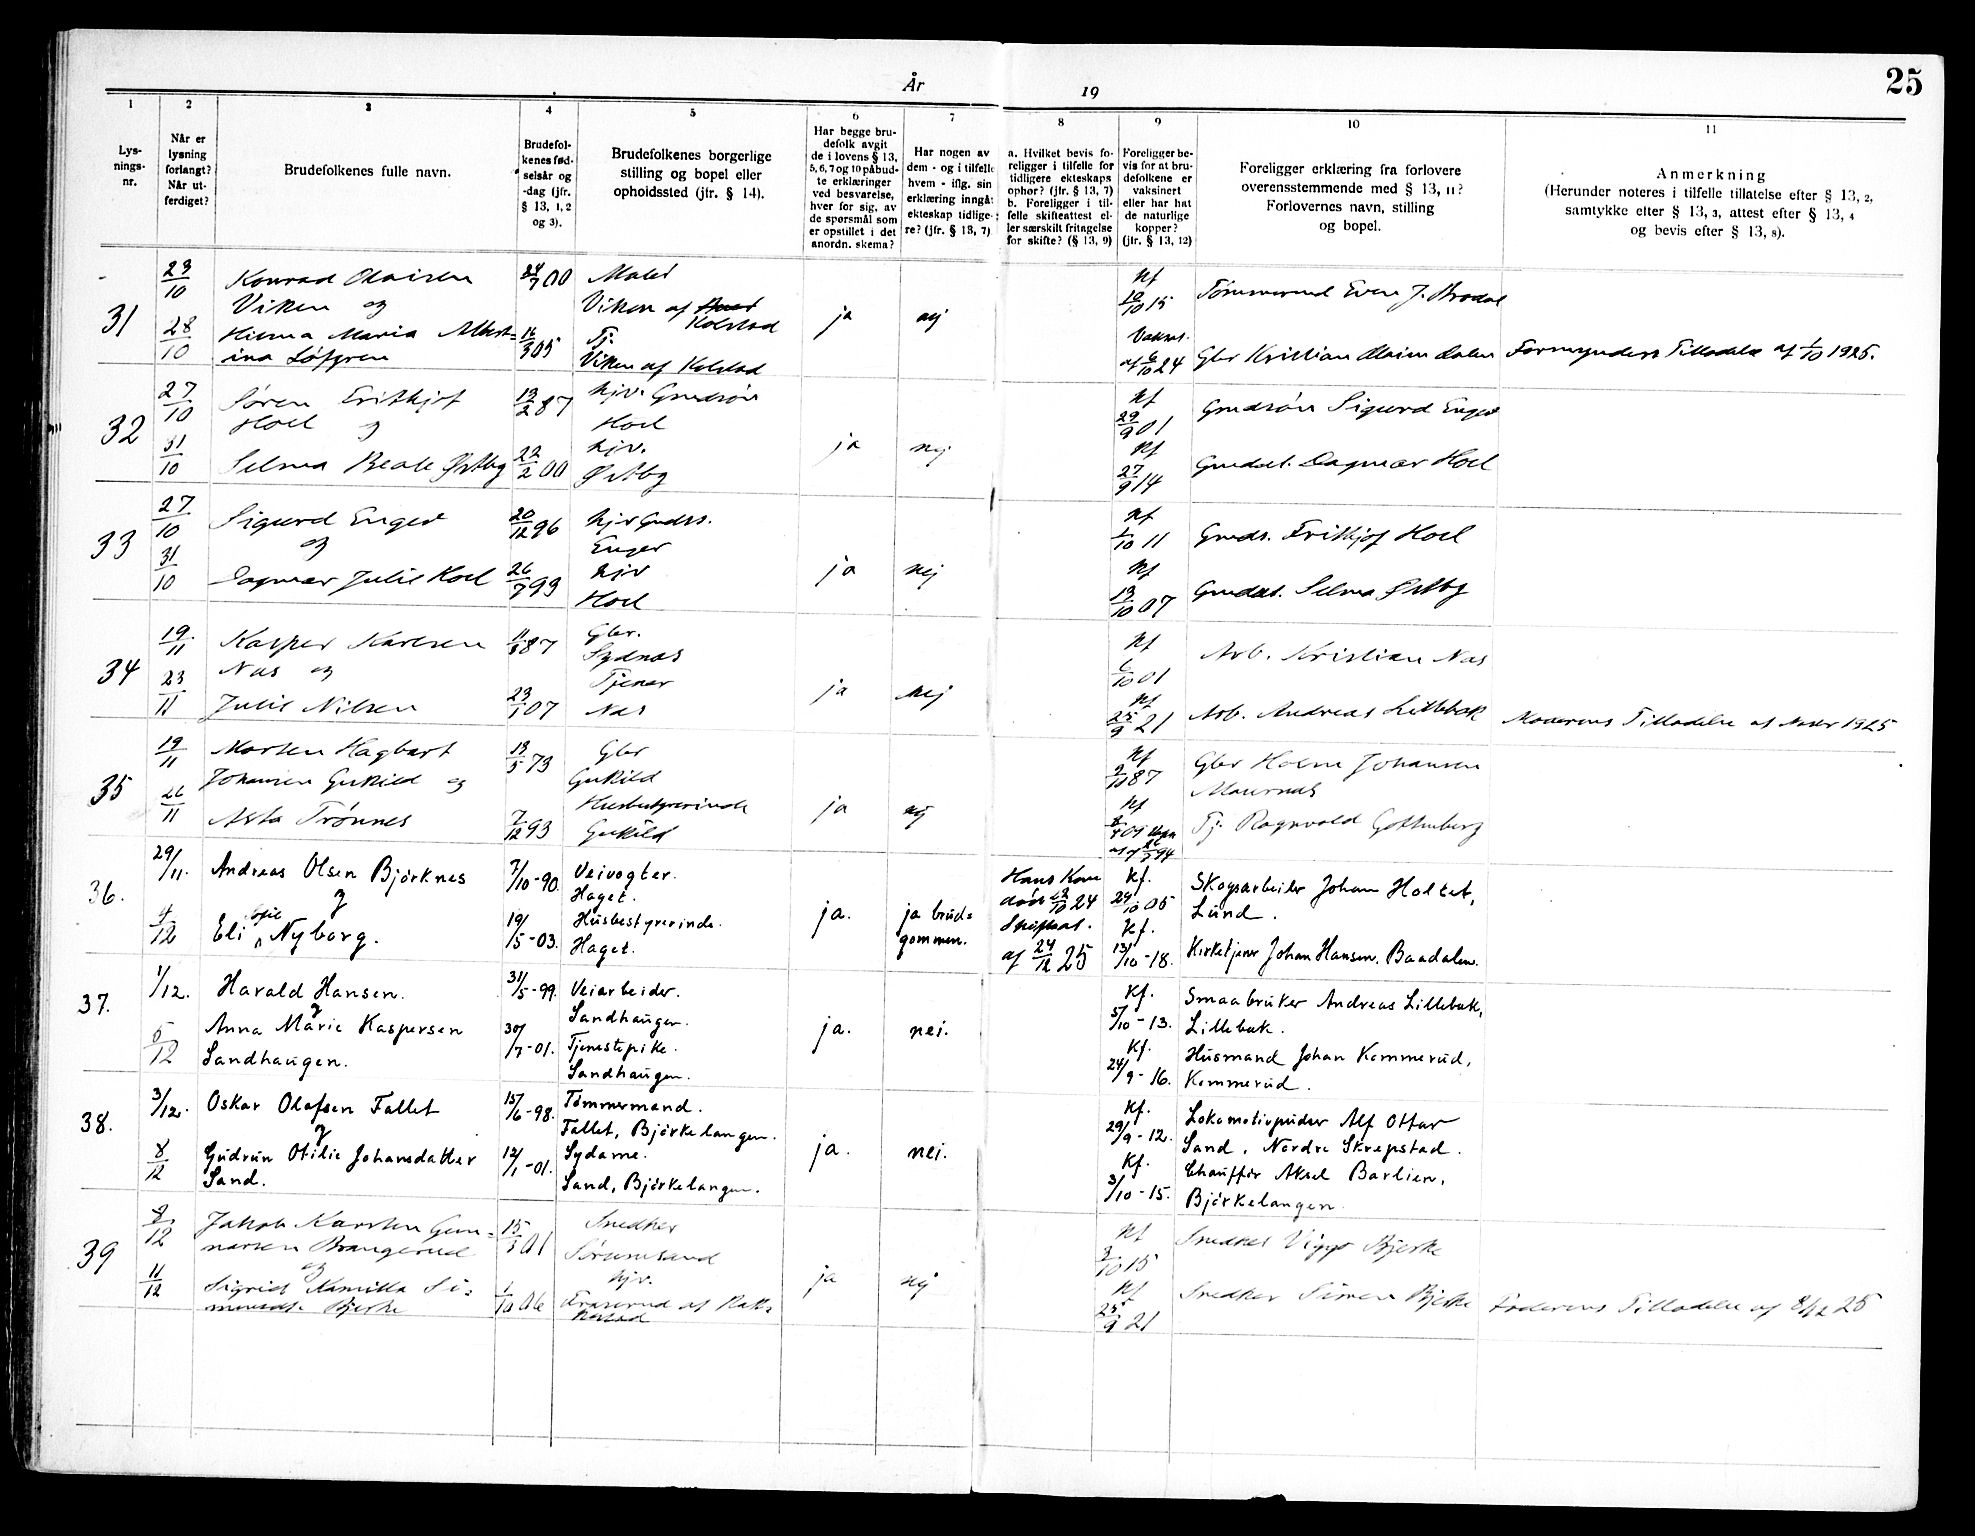 25
År 19
1 2 3 4 5 6 7 8 9 10 11
Lys-
nings-
nr.
Når er
lysning
forlangt?
Når ut-
ferdiget?
Brudefolkenes fulle navn.
Brudefol-
kenes fød-
selsår og
-dag (jfr.
§ 13, 1, 2
og 3).
Brudefolkenes borgerlige
stilling og bopel eller
opholdssted (jfr. § 14).
Har begge bru-
defolk avgit
de i lovens § 13,
5, 6, 7 og 10 påbud-
te erklæringer
ved besvarelse,
hver for sig, av
de spørsmål som
er opstillet i det
anordn. skema?
Har nogen av
dem - og i tilfelle
hvem - iflg. sin
erklæring inngåt
ekteskap tidlige-
re? (jfr. § 13, 7)
a. Hvilket bevis fo-
religger i tilfelle for
tidligere ekteskaps
ophør? (jfr. § 13, 7)
b. Foreligger i til-
felle skifteattest el-
ler særskilt fritagelse
for skifte? (§ 13, 9)
Foreligger be-
vis for at bru-
defolkene er
vaksinert
eller har hat
de naturlige
kopper?
(jfr. § 13, 12)
Foreligger erklæring fra forlovere
overensstemmende med § 13, 11?
Forlovernes navn, stilling
og bopel.
Anmerkning
(Herunder noteres i tilfelle tillatelse efter § 13, 2,
samtykke efter § 13, 3, attest efter § 13, 4
og bevis efter § 13, 8).
31
23/10
28/10
Konrad Olaisen
Viken og
Hilma Maria Albert=
ina Løfgren
24/7 00
16/3 05
Maler
Viken af Kolstad
Tj.
Viken af Kolstad
ja
nej
Kf
10/10 15
Vaksat.
af 6/10 24
Tømmermd Even J. Brodal
Gbr Kristian Olaisen Dalen
Formynders Tilladelse af 1/10 1925.
32
27/10
31/10
Søren Frithjof
Hoel og
Selma Beate Østby
13/2 87
22/2 00
hjv. Grudsøn
Hoel
hjv.
Østby
ja
nej
Kf
29/9 01
Kf
27/9 14
Grudsøn Sigurd Enger
Gruddat. Dagmar Hoel
33
27/10
31/10
Sigurd Enger
og
Dagmar Julie Hoel
20/12 96
26/7 93
hjv Grudss.
Enger
hjv
Hoel
ja
nej
Kf
1/10 11
Kf
13/10 07
Gruds. Frithjof Hoel
Gruddat. Selma Østby
34
19/11
23/11
Kasper Karlsen
Nas og
Julie Nilsen
11/8 87
23/1 07
Gbr.
Sydnas
Tjener
Nas
ja
nej
Kf
6/10 01
Kf
25/9 21
Arb. Kristian Nas
Arb. Andreas Lillebak
Moderens Tilladelse af Novbr 1925
35
19/11
26/11
Morten Hagbart
Johansen Gukild og
Asta Trønnes
13/5 73
7/12 93
Gbr
Gukild
Husbestyrerinde
Gukild
ja
nej
Kf
9/10 87
Kf
Gbr Holm Johansen
Maurnas
Tj. Ragnvald Gothenborg
36.
29/11.
4/12
Andreas Olsen Bjørknes
og
Eli Nyborg.
7/10-90.
19/5-03.
Veivogter.
Haget.
Husbestyrerinde.
Haget.
ja.
ja brud=
gommen.
Hans Kone
død 12/10 24
Skifteat.
af 24/12 25
Kf.
24/10 05
Kf.
13/10-18.
Skogsarbeider Johan Holtet,
Lund.
Kirketjener Johan Hansen. Baadalen.
37.
1/12.
5/12
Harald Hansen.
og
Anna Marie Kaspersen
Sandhaugen.
31/5-99.
30/7-01.
Veiarbeider.
Sandhaugen.
Tjenestepike.
Sandhaugen.
ja.
nei.
Kf.
5/10-13.
Kf.
24/9-16.
Smaabruker Andreas Lillebak,
Lillebak.
Husmand Johan Kommerud,
Kommerud.
38.
3/12.
8/12
Oskar Olafsen Fallet
og
Gudrun Otilie Johansdatter
Sand.
15/6-98.
12/1-01.
Tømmermand.
Fallet, Bjørkelangen.
Sydame.
Sand, Bjørkelangen.
ja.
nei.
Kf.
29/9-12.
Kf.
3/10-15.
Lokomotivpudser Alf Ottar
Sand, Nordre Skrepstad.
Chauffør Aksel Barlien,
Bjørkelangen.
39
8/12
11/12
Jakob Karsten Gun=
narsen Brangerud
og
Sigrid Kamilla Si=
monsdt. Bjerke
15/3 01
1/10 06
Snedker
Sørumsand
hjv.
ja
nej
Kf
3/10 15
Kf
25/9 21
Snedker Viggo Bjerke
Snedker Simen Bjerke
Faderens Tilladelse af 8/12 25